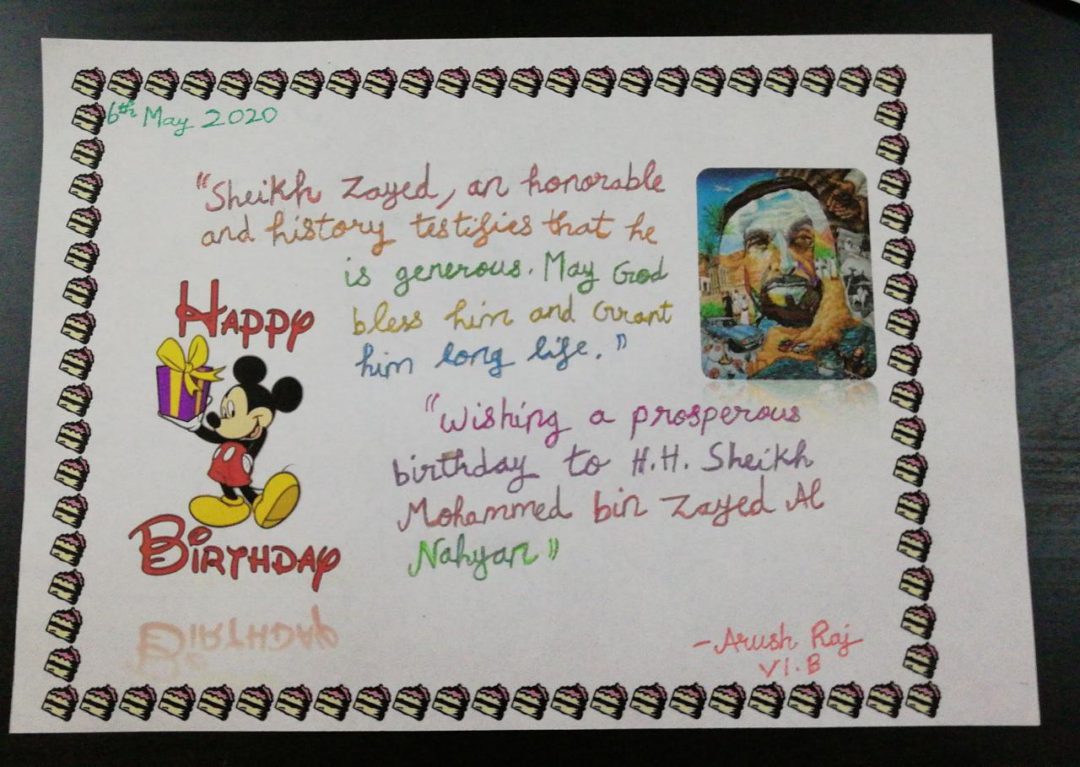 6th May 2020
"Sheikh Zayed, an honorable
and history testifies that he
is generous. May God
bless him and Grant
him long life."
HAPPY
BIRTHDAY
"Wishing a prosperous
birthday to H.H. Sheikh
Mohammed bin Zayed Al
Nahyan"
- Arush Raj
VI.B